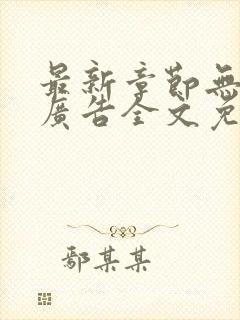 最新章節無
廣告全文免
鄢某某